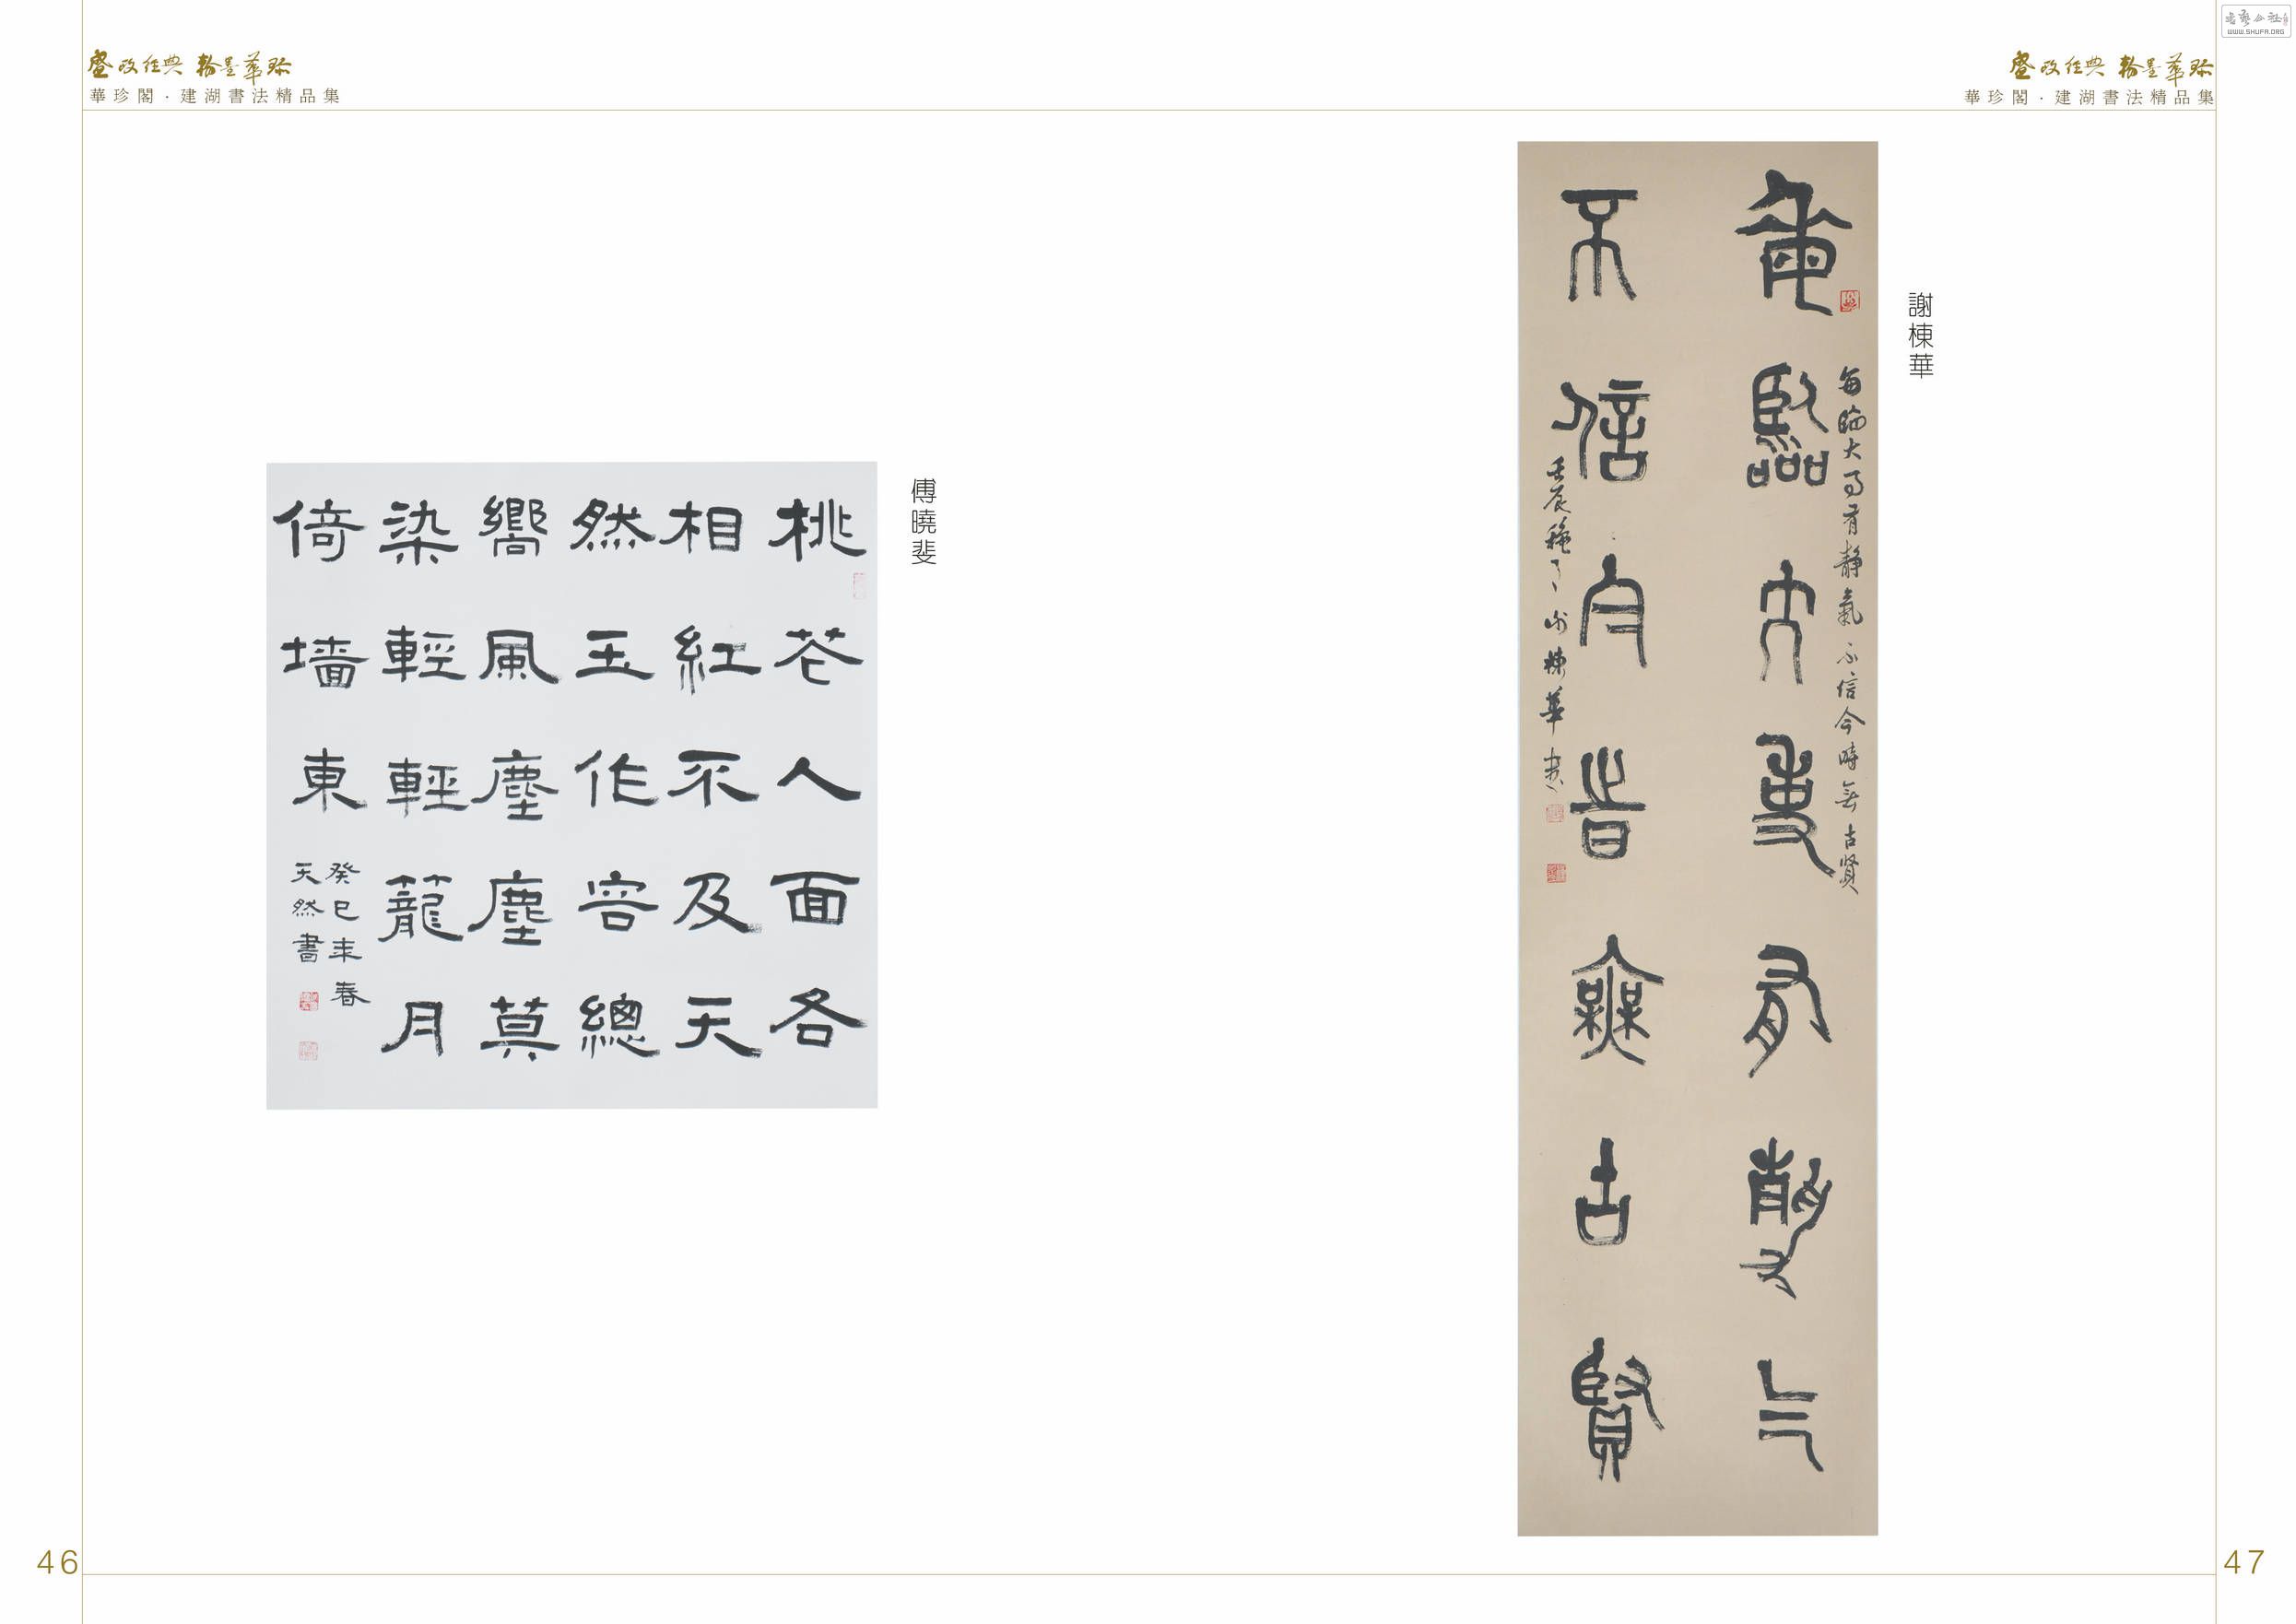 盛政经典 翰墨華珍
華珍閣·建湖書法精品集
傅曉斐
桃花人面各
相紅不及天
然玉作容總
嚮風塵塵莫
染輕輕籠月
倚墻東
癸巳年春
天然書
46
盛政经典 翰墨華珍
華珍閣·建湖書法精品集
謝棟華
每臨大事有靜氣
不信今時無古賢
每臨大事有静氣 不信今時無古賢
壬辰秋月 謝棟華書
47
WWW.SHUFA.ORG